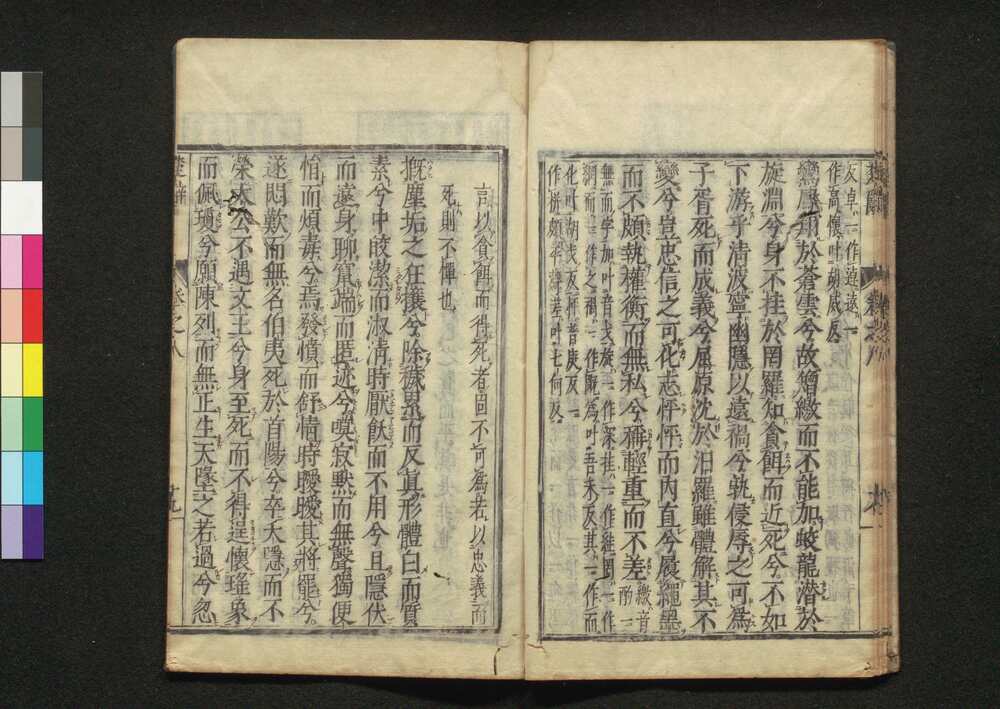 反卓一作逴遠一
作高懷叶胡威反
鸞鳳翔於蒼雲兮故矰繳而不能加蛟龍潛於
旋淵兮身不挂於罔羅知貪餌而近死兮不如
下游乎清波寧幽隱以遠禍兮孰侵辱之可爲
子胥死而成義兮屈原沈於汨羅雖體解其不
變兮豈忠信之可化志怦怦而内直兮履繩墨
而不頗執權衡而無私兮稱輕重而不差
繳音酌一
無而字加叶音
深挂一作絓罔一作
網而一作之禍一作
化叶胡戈反怦普庚反一
作恲頗平聲差叶七何反
言以貪餌而得死者固不可爲若以忠義而
死則不憚也
摡塵垢之狂攘兮除穢累而反眞形體白而質
素兮中皎潔而淑清時厭飫而不用兮且隱伏
而遠身聊竄端而匿迹兮嗼寂默而無聲獨便
悁而煩毒兮焉發憤而舒情時曖曖其將罷兮
遂悶歎而無名伯夷死於首陽兮卒夭隱而不
榮太公不遇文王兮身至死而不得逞懷瑤象
而佩瓊兮願陳列而無正生天墬之若過兮忽
楚辭
卷之八
十九